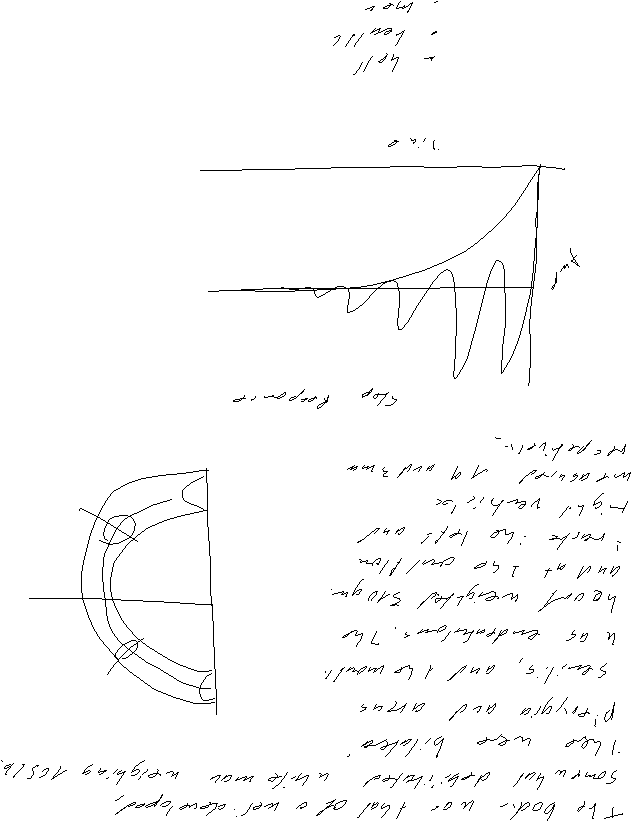 The body was that of a well developed,
somewhat debilitated white man weighing 165 lb.
There were bilateral
pterygia and arcus
senilis, and the mouth
was endentulous. The
heart weighted 510 gm.
and at the outflow
tracts the left and
right ventricle
measured 19 and 3 mm
respectively.
Step Response
Amp
Time